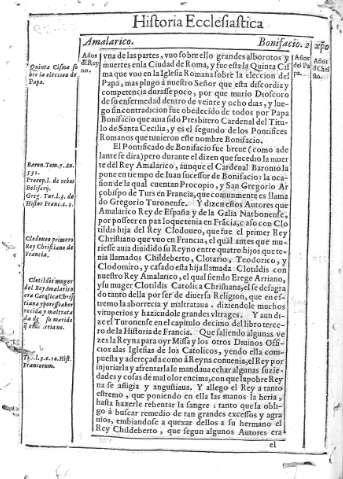 Historia Ecclesiastica
Amalarico.
Bonifacio. 2
Años
d' Rey
Años
del Pa
pa.
Años
Quinta Cisma so
bre la eleccion de
Papa.
vna de las partes, vuo sobre ello grandes alborotos y
muertes en la Ciudad de Roma, y fue esta la Quinta Cis
ma que vuo en la Iglesia Romana sobre la eleccion del
Papa, mas plugo à nuestro Señor que esta discordia y
competencia durasse poco, por que murio Dioscoro
de su enfermedad dentro de veinte y ocho dias, y lue-
go sin contradicion fue obedecido de todos por Papa
Bonifacio que auia sido Presbitero Cardenal del Titu
lo de Santa Cecilia, y es el segundo de los Pontifices
Romanos que tuuieron este nombre Bonifacio.
El Pontificado de Bonifacio fue breue (como ade
lante se dira) pero durante el dizen que sucedio la muer
te del Rey Amalarico, aunque el Cardenal Baronio la
pone en tiempo de Iuan sucessor de Bonifacio: la oca
sion de la qual cuentan Procopio, y San Gregorio Ar
çobispo de Turs en Francia, que comunmente es llama
do Gregorio Turonense. Y dizen estos Autores que
Amalarico Rey de España y de la Galia Narbonense,
por posseer en paz lo que tenia en Frãcia, caso con Clo
tildis hija del Rey Clodoueo, que fue el primer Rey
Christiano que vuo en Francia, el qual antes que mu-
riesse auia diuidido su Reyno entre quatro hijos que te-
nia llamados Childeberto, Clotario, Teodorico, y
Clodomiro, y casado esta hija llamada Clotildis con
nuestro Rey Amalarico, el qual siendo Erege Arriano,
y su muger Clotildis Catolica Christiana, el se desagra
do tanto della por ser de diuersa Religion, que en es-
tremo la aborrecia y maltrataua, diziendole muchos
vituperios y haziendole grandes vltrages. Y aun di-
ze el Turonense en el capitulo decimo del libro terce-
ro de la Historia de Francia. Que saliendo algunas ve
zes la Reyna para oyr Missa y los otros Diuinos Offi
cios a las Iglesias de los Catolicos, yendo ella compu
esta y adereçada como à Reyna conuenia, el Rey por
injuriarla y afrentarla le mandaua echar algunas suzie
dades y cosas de mal olor encima, con que la pobre Rey
na se afligia y angustiaua. Y allego el Rey a tanto
estremo, que poniendo en ella las manos la heria,
hasta hazerle rebentar la sangre: tanto que la obli-
go à buscar remedio de tan grandes excessos y agra
uios, embiandose a quexar dellos a su hermano el
Rey Childeberto, que segun algunos Autores era
el
Baron. Tom. 7. An.
531.
Procop. l. de rebus
Belisarij.
Greg. Tur. l. 3. de
Histor. Franc. c. 1.
Clodoueo primero
Rey Christiano de
Francia.
Clotildis muger
del Rey Amalarico
era Catolica Christ
iana y por esso abor
recida y maltrata
da de su marido
q era arriano.
Tu. l. 3. c. 10. Hist.
Francorum.